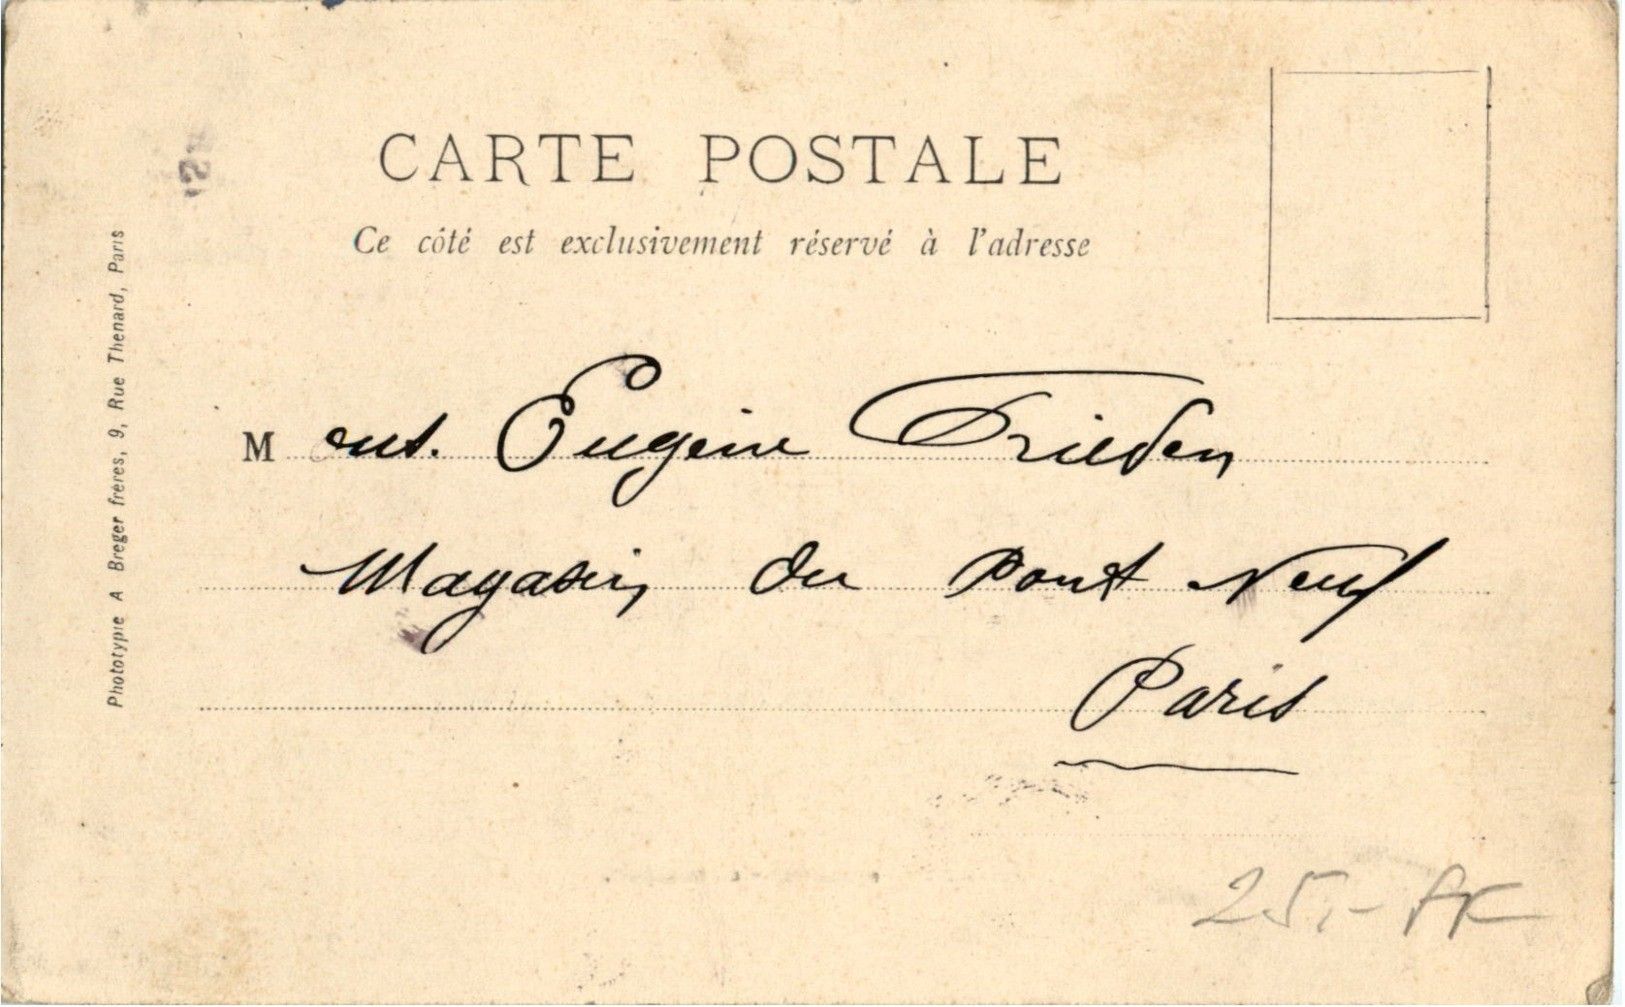 CARTE POSTALE
Ce côté est exclusivement réservé à l'adresse
M Eugène Frieden
Magasin du Pont Neuf
Paris
25,-
Phototypie A Breger frères, 9, Rue Thenard, Paris